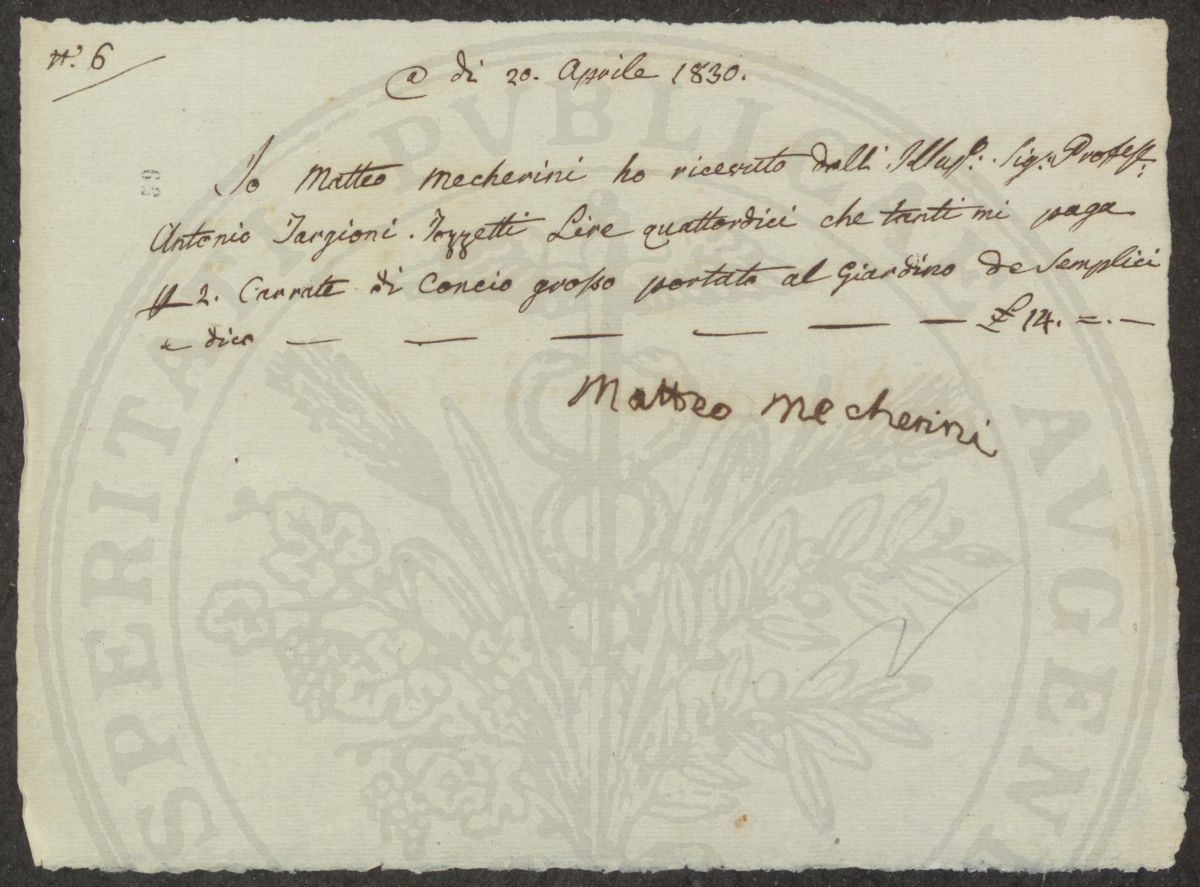 N.° 6
@ di 20. Aprile 1830.
59
Io Matteo Mecherini ho ricevuto dall' Illus.º Sig.r Profess.r
Antonio Targioni Tozzetti Lire quattordici che tanti mi paga
p 2. Carrate di Concio grosso portato al Giardino de Semplici
e dico — — — — — — £ 14. =.—
Matteo Mecherini
PUBLICAE
SPERITATI
AUGEN